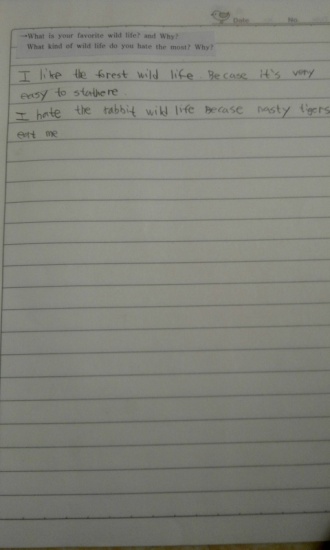 Date No.
→What is your favorite wild life? and Why?
What kind of wild life do you hate the most? Why?
I like the forest wild life. Because it's very
easy to stahere
I hate the rabbit wild life Because nasty tigers
eat me